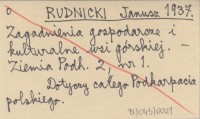 o RUDNICKI Janusz 1937.
Zagadnienia gospodarcze i
kulturalne wsi górskiej. –
Ziemia Podh. 2, nr 1.
Dotyczy całego Podkarpacia
polskiego.